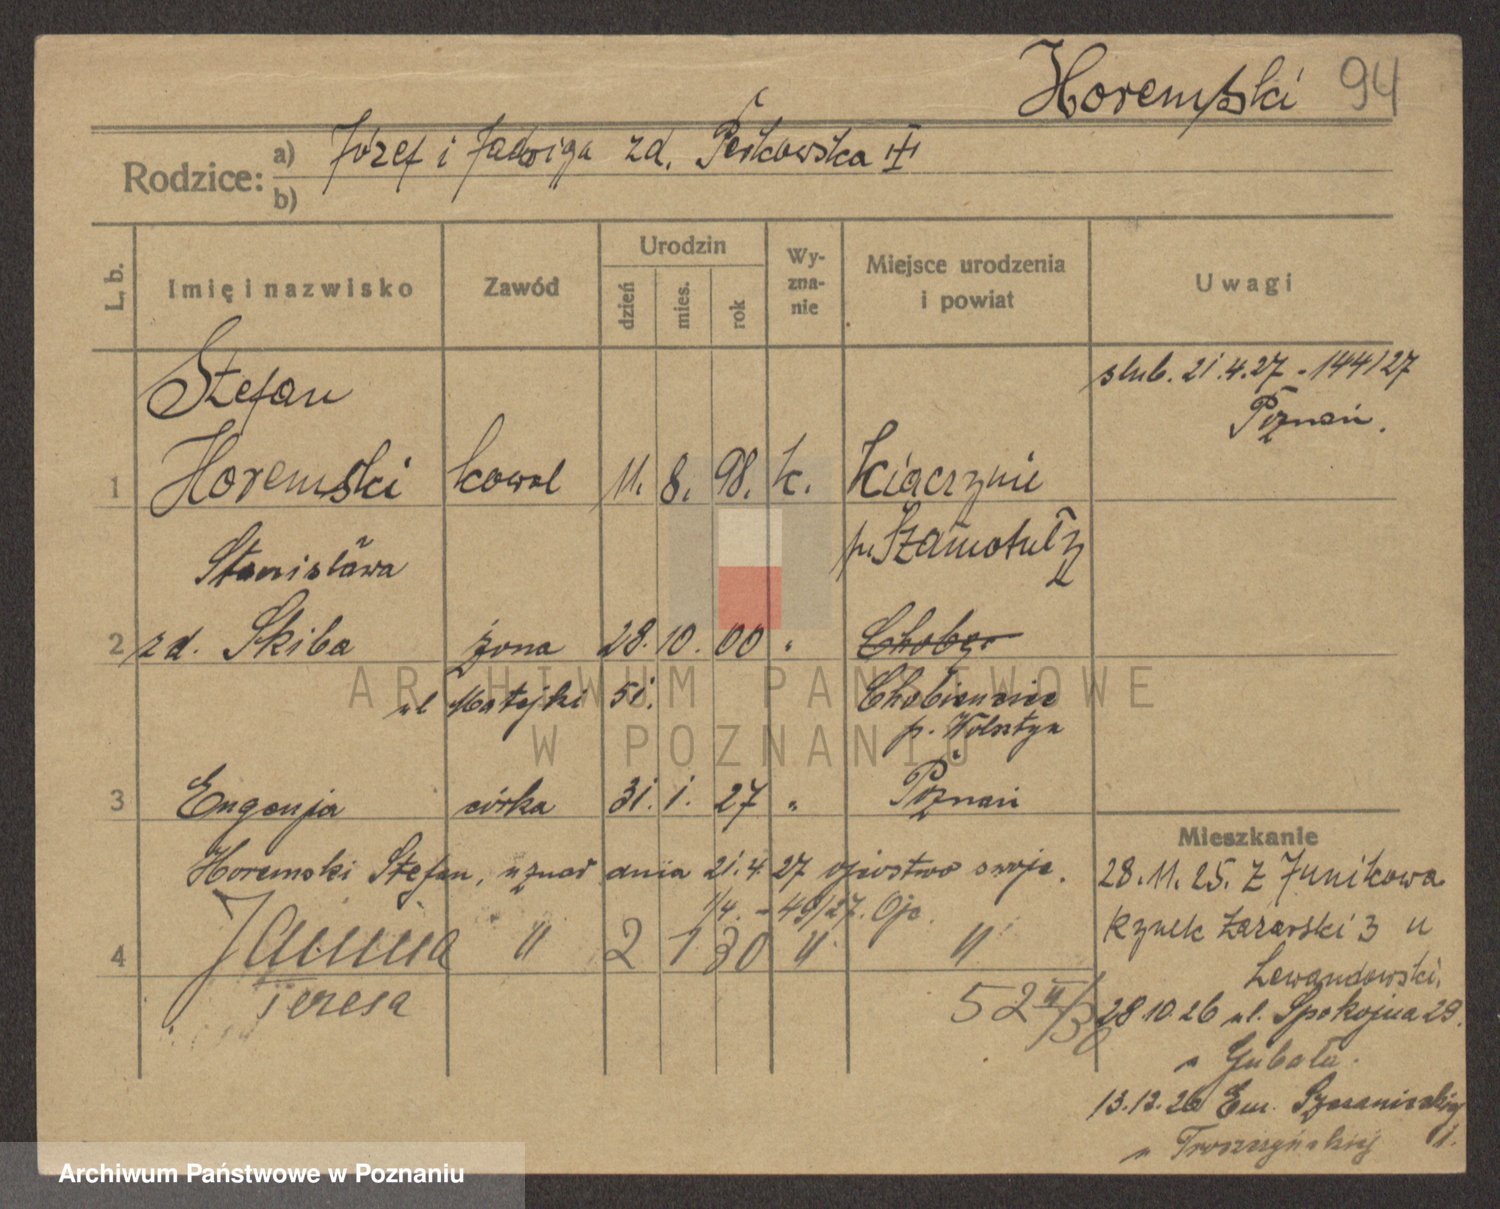 Horemski 94
Rodzice: a) Józef i Jadwiga zd. Peikowska
b)
L. b. Imię i nazwisko Zawód Urodzin dzień mies. rok Wy-zna-nie Miejsce urodzenia i powiat Uwagi
Stefan ślub. 21.4.27 - 144/27
Poznań.
1 Horemski kowal 11. 8. 98. k. Kiączynie
Stanisława p. Szamotuły
2 zd. Skiba żona 28. 10. 00 " Chob
ul Matejki 51. Chobienice
p. Wolsztyn
3 Eugenja córka 31. 1. 27 " Poznań
Horemski Stefan, uznał dnia 21.4.27 ojcostwo swoje.
1/4. - 49/27. Ojc.
4 Janina " 2 1 30 " "
Teresa 52 II/30
Mieszkanie
28.11.25. z Junikowa
Rynek Łazarski 3 u
Lewandowski.
28.10.26 ul. Spokojna 29.
u Gubała.
13.12.26 Em. Sczanieckiej
u 1.
ARCHIWUM PAŃSTWOWE
W POZNANIU
Archiwum Państwowe w Poznaniu